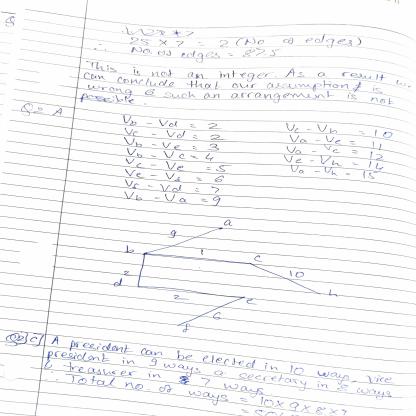 25 x 7 = 2 (No of edges)
∴ No of edges = 87.5
This is not an integer. As a result
can conclude that our assumption is
wrong & such an arrangement is not
possible.
Q2 A
Vb - Vd = 2
Vc - Vd = 2
Vb - Ve = 3
Vb - Vc = 4
Vc - Ve = 5
Ve - Vf = 6
Vf - Vd = 7
Vb - Va = 9
Vc - Vh = 10
Va - Ve = 11
Va - Vc = 12
Ve - Vh = 14
Va - Vh = 15
a
9
b
1
c
10
h
2
d
2
e
6
f
Q2 C) A president can be elected in 10 ways, vice
president in 9 ways a secretary in 8 ways
& treasurer in 7 ways
∴ Total no of ways = 10 x 9 x 8 x 7